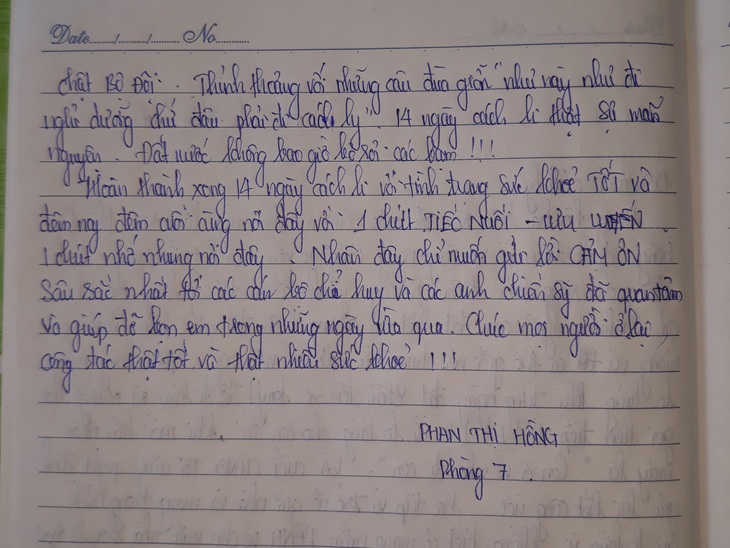 Date....../....../......... No.............
chất Bộ Đội. Thỉnh thoảng với những câu đùa giỡn "như này như đi
nghỉ dưỡng chứ đâu phải đi cách ly". 14 ngày cách li thật sự mãn
nguyện. Đất nước không bao giờ bỏ rơi các bạn!!!
Hoàn thành xong 14 ngày cách li với tình trạng sức khoẻ TỐT và
đêm nay đêm cuối cùng nơi đây với 1 chút TIẾC NUỐI - LƯU LUYẾN.
1 chút nhớ nhung nơi đây. Nhân đây chỉ muốn gửi lời CẢM ƠN
sâu sắc nhất tới các cán bộ chỉ huy và các anh chiến sỹ đã quan tâm
và giúp đỡ bọn em trong những ngày vừa qua. Chúc mọi người ở lại,
công tác thật tốt và thật nhiều sức khoẻ !!!
PHAN THỊ HỒNG
Phòng 7.